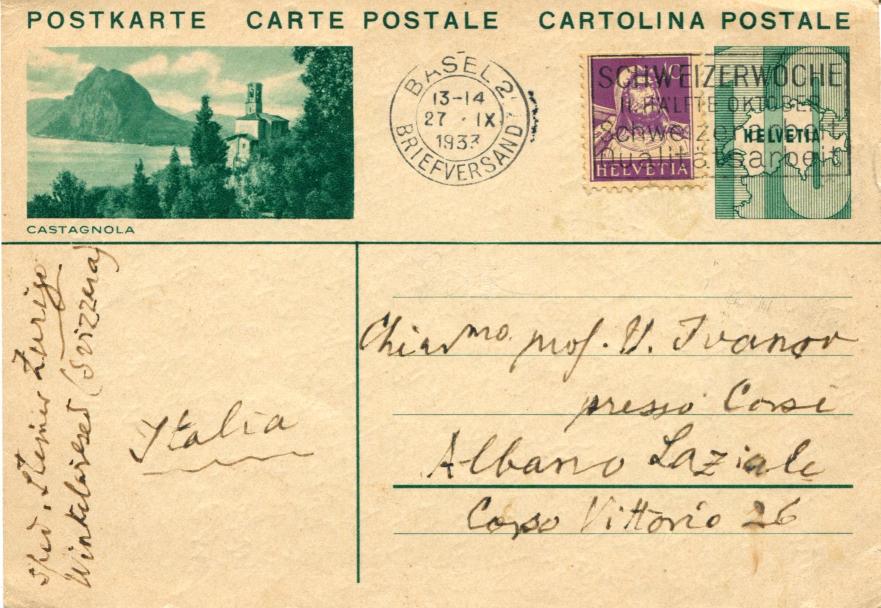 POSTKARTE CARTE POSTALE CARTOLINA POSTALE
CASTAGNOLA
BASEL 2
13-14
27 · IX
1933
BRIEFVERSAND
HELVETIA
SCHWEIZERWOCHE
II. HÄLFTE OKTOBER
Schweizerarbeit
Qualitätsarbeit
HELVETIA
10
Chiarmo. prof. V. Ivanov
presso Corsi
Albano Laziale
Corso Vittorio 26
Italia
Sped. Steiner Zurigo
(Svizzera)